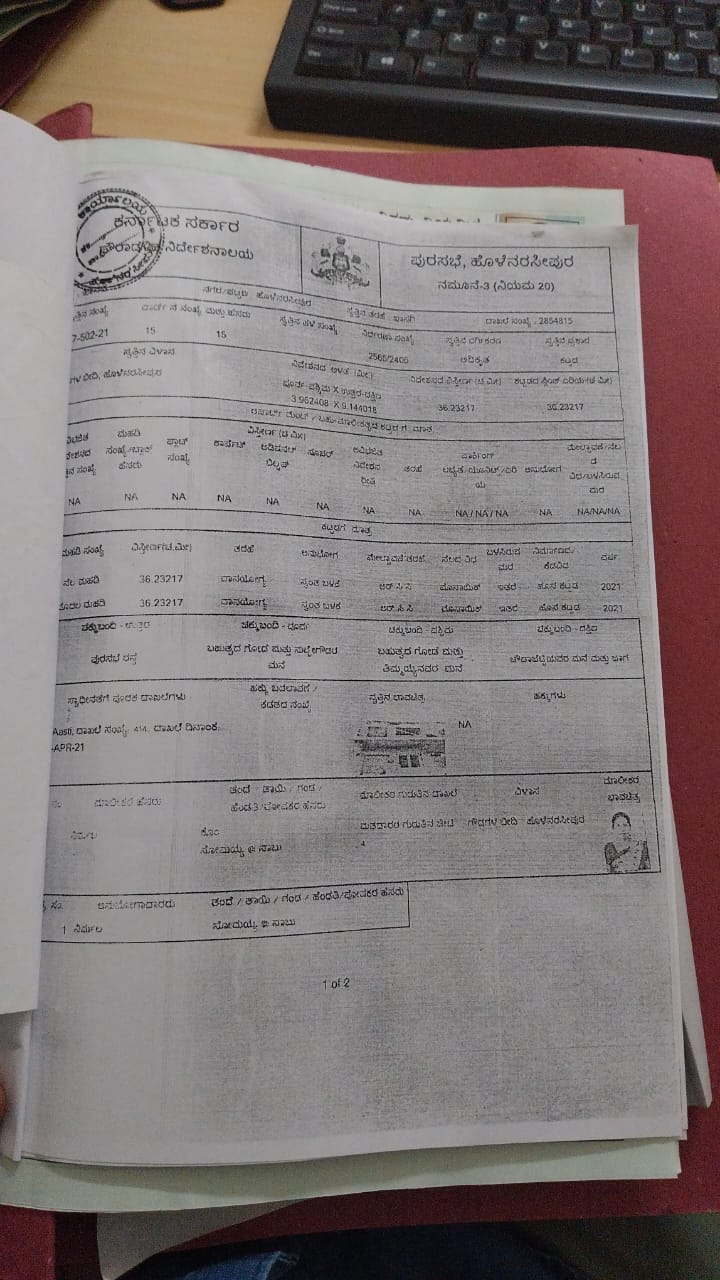 ಕಾರ್ಯಾಲಯ
ಕರ್ನಾಟಕ ಸರ್ಕಾರ
ನಿರ್ದೇಶನಾಲಯ
ಪುರಸಭೆ, ಹೊಳೆನರಸೀಪುರ
ನಮೂನೆ-3 (ನಿಯಮ 20)
ನಗರ/ಪಟ್ಟಣ ಹೊಳೆನರಸೀಪುರ ಸ್ವತ್ತಿನ ತರಹೆ : ಖಾಸಗಿ ದಾಖಲೆ ಸಂಖ್ಯೆ : 2854815
ತ್ತಿನ ಸಂಖ್ಯೆ ವಾರ್ಡ್ ನ ಸಂಖ್ಯೆ ಮತ್ತು ಹೆಸರು ಸ್ವತ್ತಿನ ಹಳೆ ಸಂಖ್ಯೆ ನಿರ್ಧರಣಾ ಸಂಖ್ಯೆ ಸ್ವತ್ತಿನ ವರ್ಗೀಕರಣ ಸ್ವತ್ತಿನ ಪ್ರಕಾರ
7-502-21 15 15 2565/2406 ಅಧಿಕೃತ ಕಟ್ಟಡ
ಸ್ವತ್ತಿನ ವಿಳಾಸ ನಿವೇಶನದ ಅಳತೆ (ಮೀ) ನಿವೇಶನದ ವಿಸ್ತೀರ್ಣ (ಚ.ಮೀ) ಕಟ್ಟಡದ ಪ್ಲಿಂತ್ ಏರಿಯ(ಚ.ಮೀ)
ಗಳ ಬೀದಿ, ಹೊಳೆನರಸೀಪುರ ಪೂರ್ವ-ಪಶ್ಚಿಮ X ಉತ್ತರ-ದಕ್ಷಿಣ
3.962408 X 9.144018 36.23217 36.23217
ಅಪಾರ್ಟ್ ಮೆಂಟ್ / ಬಹು-ಮಾಲೀಕತ್ವದ ಕಟ್ಟಡಗಳಿಗೆ ಮಾತ್ರ
ವಿಸ್ತೀರ್ಣ (ಚ.ಮೀ)
ಮಹಡಿ ಸಂಖ್ಯೆ/ಬ್ಲಾಕ್ ಹೆಸರು ಫ್ಲಾಟ್ ಸಂಖ್ಯೆ ಕಾರ್ಪೆಟ್ ಅಡಿಷನಲ್ ಬಿಲ್ಟಪ್ ಸೂಪರ್ ಅವಿಭಜಿತ ನಿವೇಶನ ತರಹೆ ಪಾರ್ಕಿಂಗ್ ಅನುಭೋಗ
NA NA NA NA NA NA NA NA NA / NA / NA NA NA/NA/NA
ಕಟ್ಟಡಗಳಿಗೆ ಮಾತ್ರ
ಮಹಡಿ ಸಂಖ್ಯೆ ವಿಸ್ತೀರ್ಣ(ಚ.ಮೀ) ತರಹೆ ಅನುಭೋಗ ಮೇಲ್ಛಾವಣಿ ತರಹೆ ನೆಲದ ವಿಧ ಬಳಸಿರುವ ಮರ ನಿರ್ಮಾಣದ/ಕೆಡವಿದ ವರ್ಷ
ನೆಲ ಮಹಡಿ 36.23217 ವಾಸಯೋಗ್ಯ ಸ್ವಂತ ಬಳಕೆ ಆರ್ ಸಿ ಸಿ ಮೊಸಾಯಿಕ್ ಇತರೆ ಹೊಸ ಕಟ್ಟಡ 2021
ಮೊದಲ ಮಹಡಿ 36.23217 ವಾಸಯೋಗ್ಯ ಸ್ವಂತ ಬಳಕೆ ಆರ್ ಸಿ ಸಿ ಮೊಸಾಯಿಕ್ ಇತರೆ ಹೊಸ ಕಟ್ಟಡ 2021
ಚಕ್ಕುಬಂದಿ - ಉತ್ತರ ಚಕ್ಕುಬಂದಿ - ಪೂರ್ವ ಚಕ್ಕುಬಂದಿ - ಪಶ್ಚಿಮ ಚಕ್ಕುಬಂದಿ - ದಕ್ಷಿಣ
ಪುರಸಭೆ ರಸ್ತೆ ಗೋಡೆ ಮತ್ತು ಮನೆ ಗೋಡೆ ಮತ್ತು ತಿಮ್ಮಯ್ಯನವರ ಮನೆ ಮನೆ ಮತ್ತು ಜಾಗ
ಸ್ವಾಧೀನತೆಗೆ ಪೂರಕ ದಾಖಲೆಗಳು ಹಕ್ಕು ಬದಲಾವಣೆ / ಕಡತದ ಸಂಖ್ಯೆ ಸ್ವತ್ತಿನ ಭಾವಚಿತ್ರ ಹಕ್ಕುಗಳು
Aasti, ದಾಖಲೆ ಸಂಖ್ಯೆ: 414, ದಾಖಲೆ ದಿನಾಂಕ: NA
-APR-21
ಮಾಲೀಕರ ಹೆಸರು ತಂದೆ / ತಾಯಿ / ಗಂಡ / ಹೆಂಡತಿ /ಪೋಷಕರ ಹೆಸರು ಮಾಲೀಕರ ಗುರುತಿನ ದಾಖಲೆ ವಿಳಾಸ ಮಾಲೀಕರ ಭಾವಚಿತ್ರ
ನಿರ್ಮಲ ಕೋಂ ಸೋಮಯ್ಯ @ ಸಾಬು ಮತದಾರರ ಗುರುತಿನ ಚೀಟಿ ಗೌಡ್ರಗಳ ಬೀದಿ ಹೊಳೆನರಸೀಪುರ
ಸಂ. ಅನುಭೋಗದಾರರು ತಂದೆ / ತಾಯಿ / ಗಂಡ / ಹೆಂಡತಿ/ಪೋಷಕರ ಹೆಸರು
1 ನಿರ್ಮಲ ಸೋಮಯ್ಯ @ ಸಾಬು
1 of 2